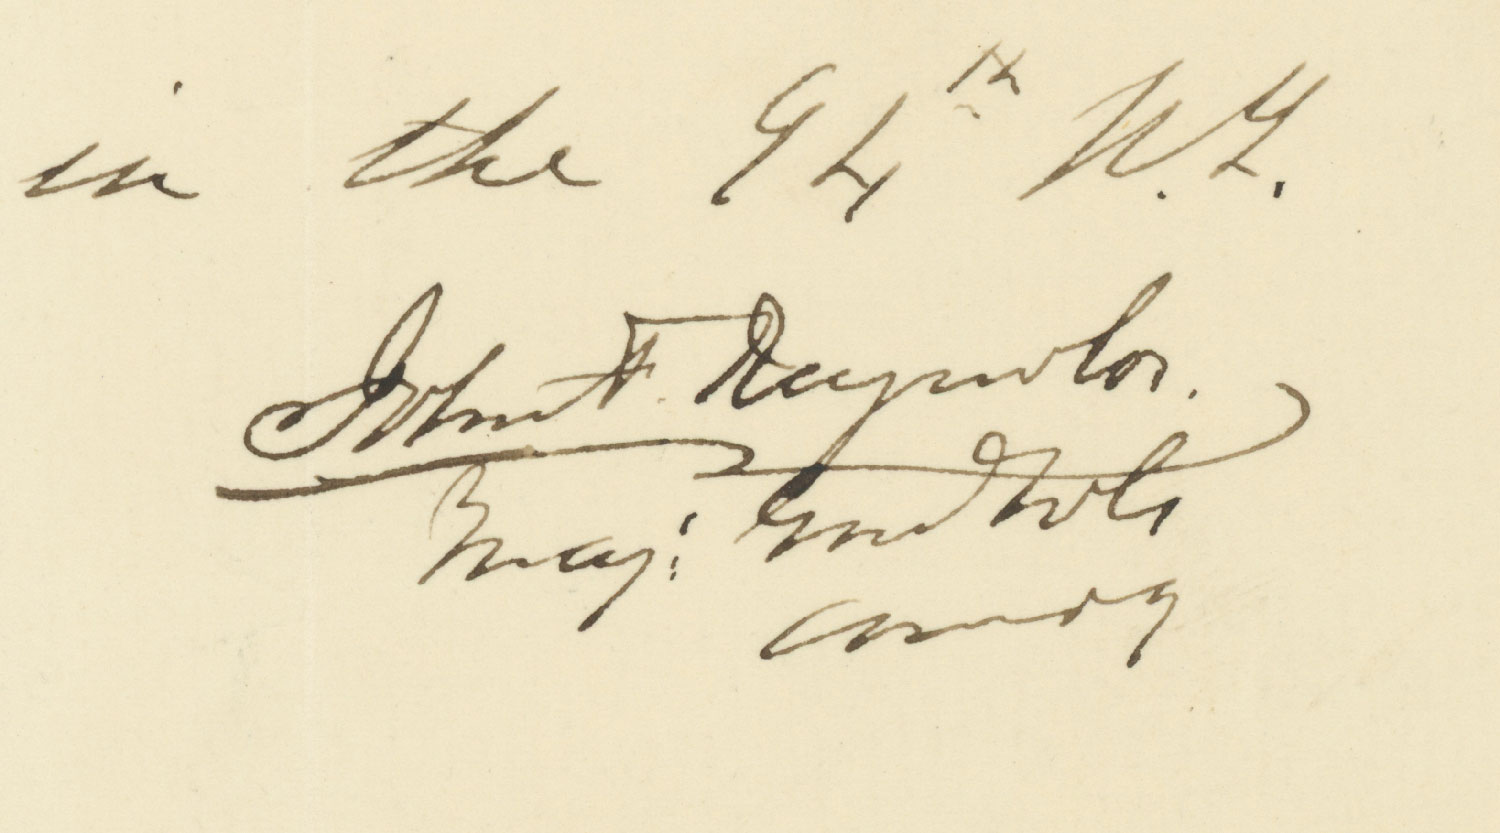 in the 94th N.Y.
John F. Reynolds.
Maj: Genl Vols
Comdg